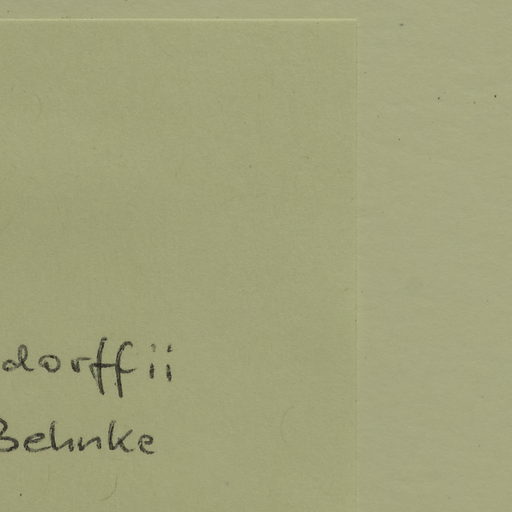 dorffii
Behnke